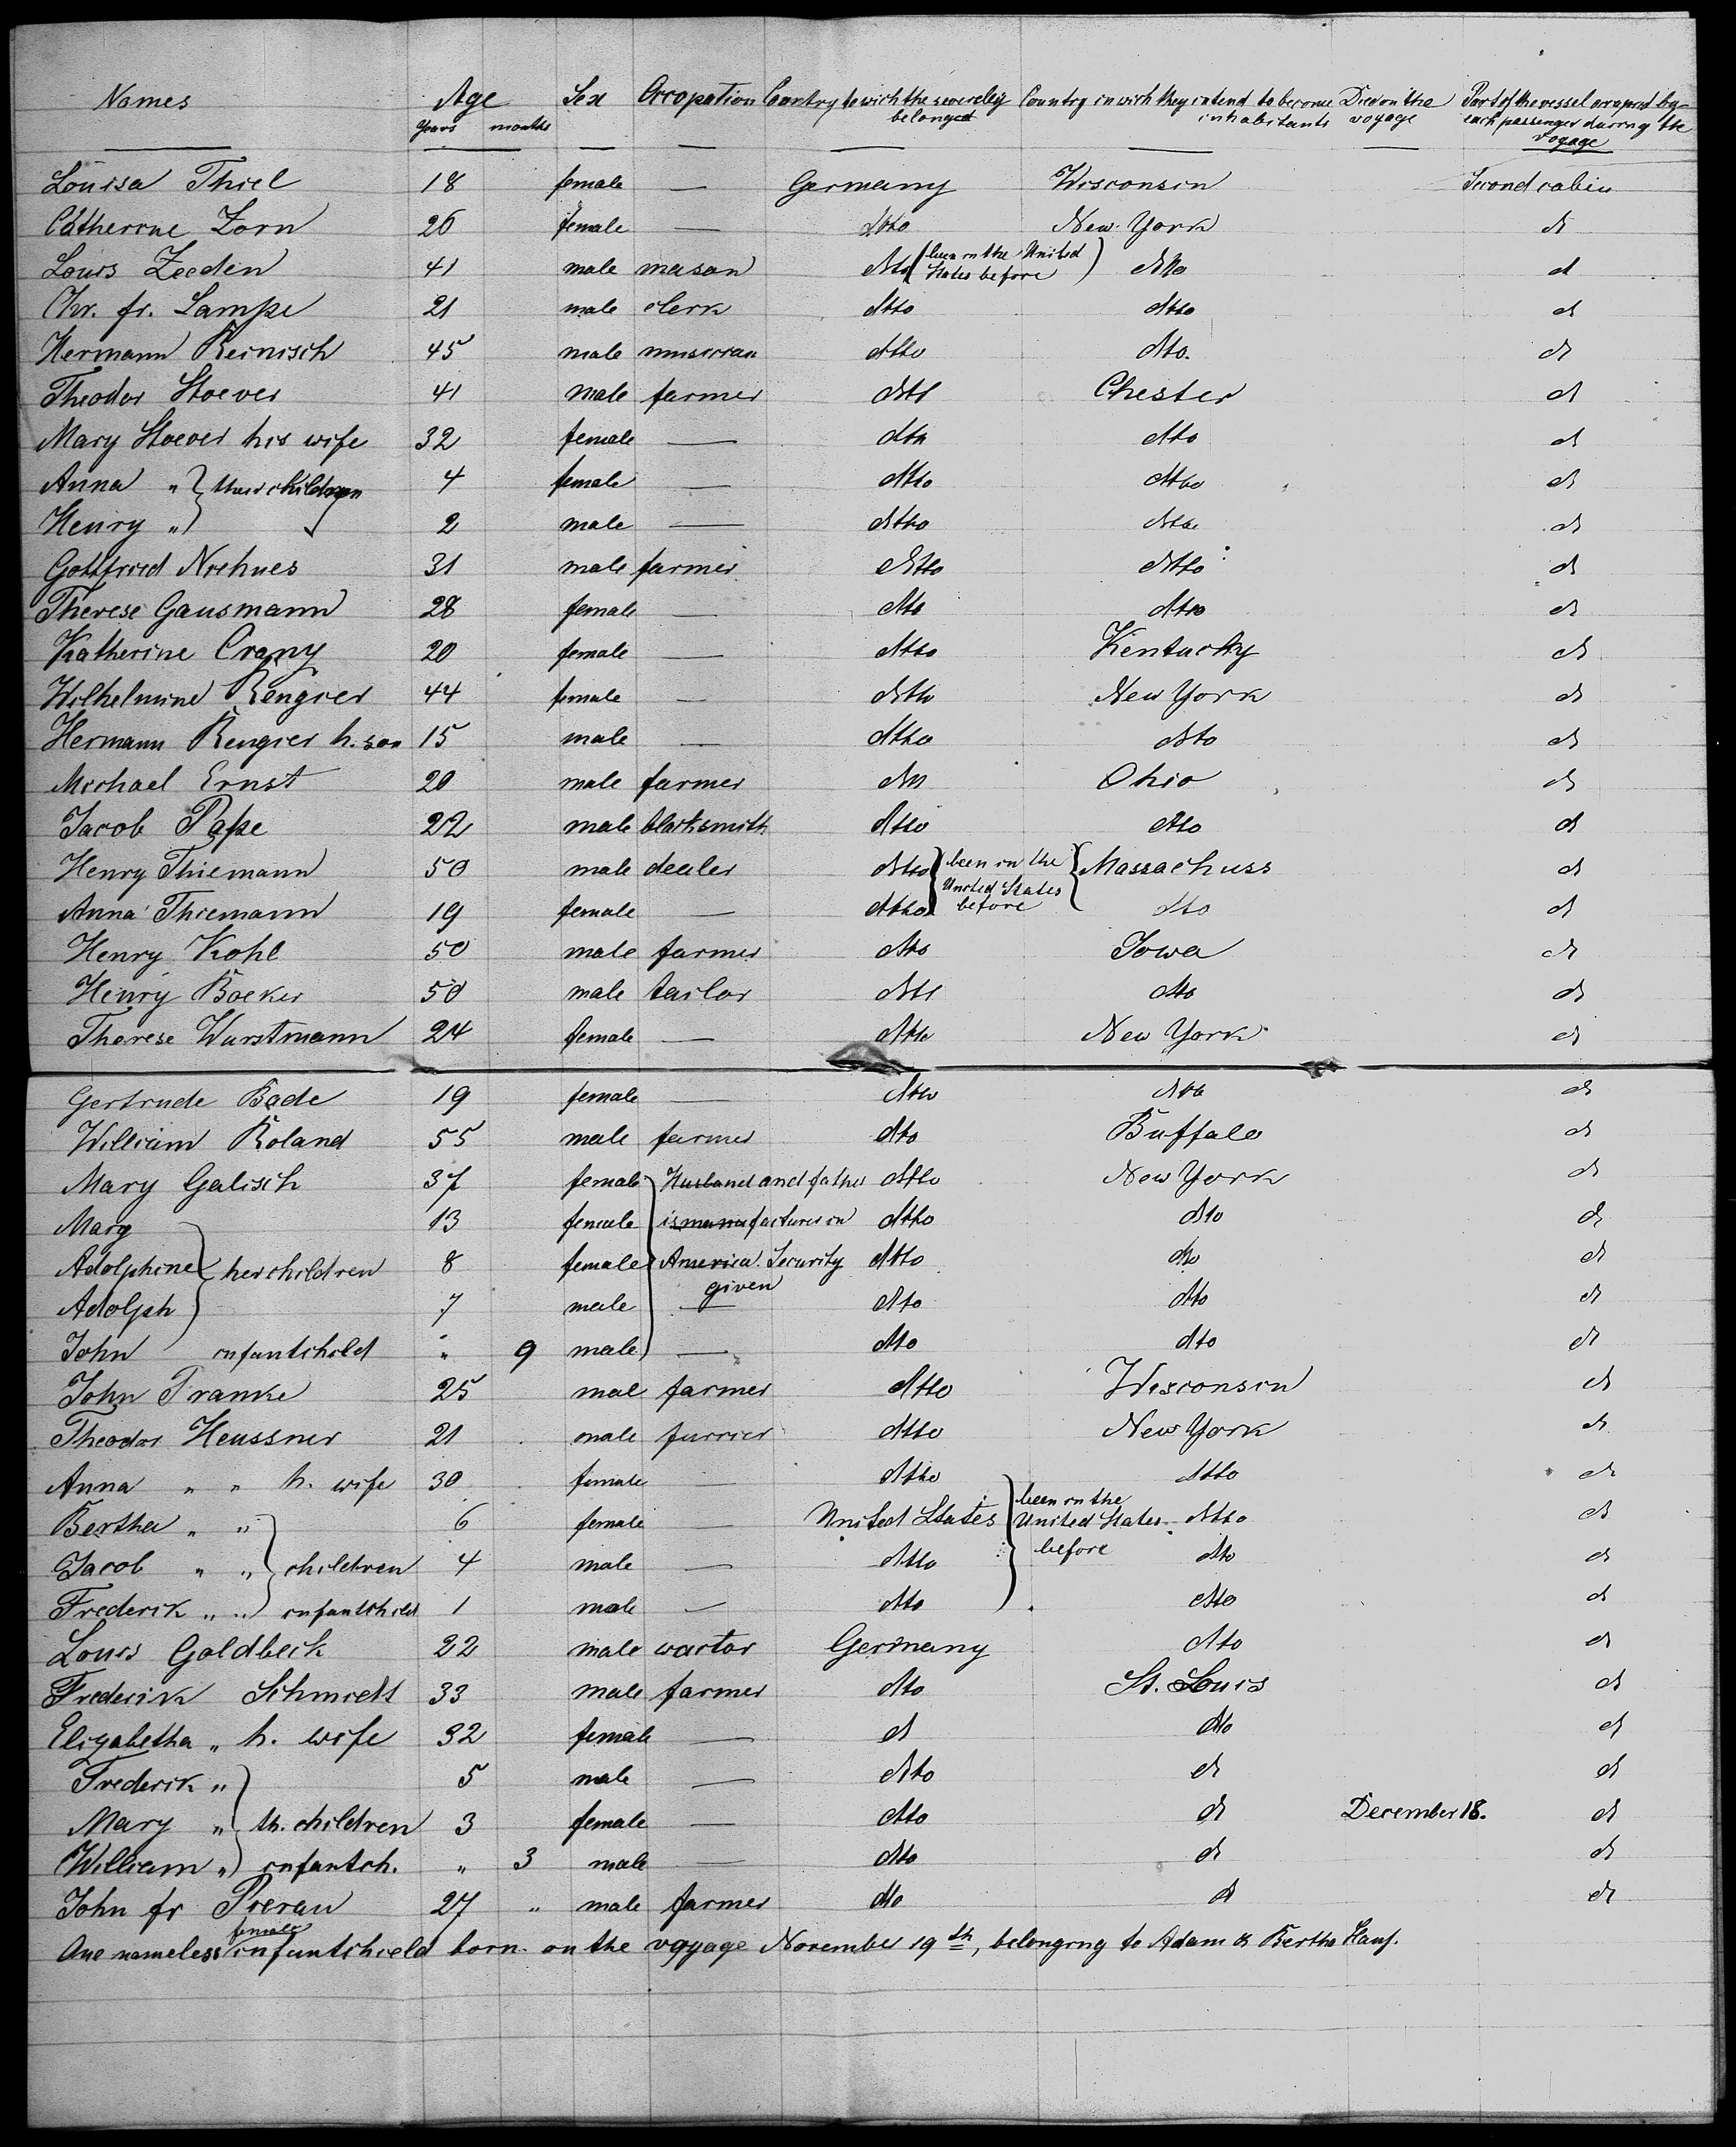 Names Age Sex Occopation Contry to wich the severelly Country in wich they intend to become Died on the Part of the vessel occupied by
Years months belonged inhabitants voyage each passenger during the
voyage
Louisa Thiel 18 female — Germany Wisconsin Second cabin
Catherine Zorn 26 female — dtto New York d
Louis Zeeden 41 male mason dtto (been in the United States before) dtto d
Chr. fr. Lampe 21 male clerk dtto dtto d
Hermann Reinisch 45 male musician dtto dto. d
Theodor Stoever 41 male farmer dtt Chester d
Mary Stoever his wife 32 female — dtto dtto d
Anna " } their children 4 female — dtto dtto d
Henry " } 2 male — dtto dtto d
Gottfried Niehues 31 male farmer dtto dtto d
Therese Gausmann 28 female — dtto dtto d
Katherine Crany 20 female — dtto Kentucky d
Wilhelmine Rengier 44 female — dtto New York d
Hermann Rengier h. son 15 male — dtto dtto d
Michael Ernst 20 male farmer dtt Ohio d
Jacob Pape 22 male blacksmith dtto dtto d
Henry Thiemann 50 male dealer dtto } been in the { Massachuss d
United States
Anna Thiemann 19 female — dtto } before { dto d
Henry Kohl 50 male farmer dtto Iowa d
Henry Boeker 50 male tailor dtt dtto d
Therese Wurstmann 24 female — dtto New York d
Gertrude Bade 19 female — dtto dtto d
William Roland 55 male farmer dto Buffalo d
Mary Galisch 37 female Husband and father dtto New York d
Mary 13 female is manufacturer in dtto dto d
Adolphine } her children 8 female America. Security dtto dto d
given
Adolph 7 male — dto dto d
John infantchild " 9 male — dto dto d
John Franke 25 mal farmer dtto Wisconsin d
Theodor Heussner 21 male furrier dtto New York d
Anna " " h. wife 30 female — dtto dtto d
Bertha " " 6 female — United States } been in the United States before dtto d
Jacob " " } children 4 male — dtto dto d
Frederik " " infantchild 1 male — dto dtto d
Louis Goldbeck 22 male waitor Germany dto d
Frederick Schmidt 33 male farmer dto St. Louis d
Elizabetha " h. wife 32 female — d dto d
Frederik " 5 male — dtto d d
Mary " } th. children 3 female — dtto d December 18. d
William " infantch. " 3 male — dto d d
John fr Pieran 27 " male farmer dto d d
female
One nameless infantchield born on the voyage November 19th, belonging to Adam & Bertha